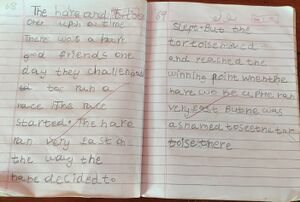 68
The hare and tortoise
Once upon a time
There was a hare
good friends one
day they challenged
to run a
race. The race
started. The hare
ran very fast on
the way the
hare decided to
69
slept. But the
tortoise moved
and reached the
winning point when the
hare wo be up he ran
very fast But he was
ashamed to see the tor
toise there